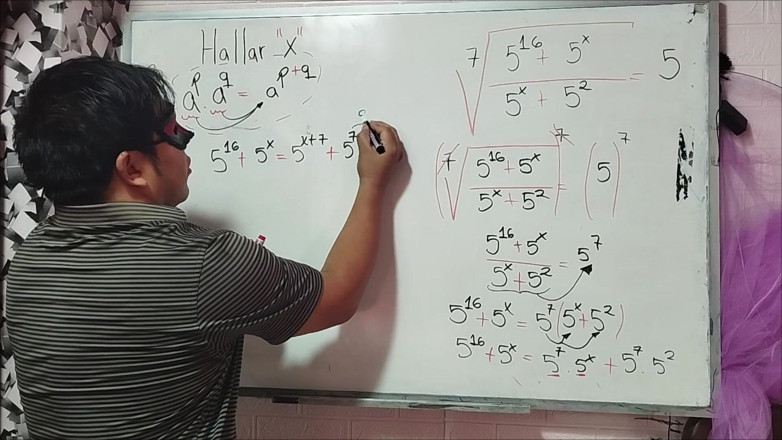 Hallar "X"
a^p · a^q = a^(p+q)
5^16 + 5^x = 5^(x+7) + 5^7
⁷√((5^16 + 5^x)/(5^x + 5^2)) = 5
(⁷√((5^16 + 5^x)/(5^x + 5^2)))^7 = (5)^7
(5^16 + 5^x)/(5^x + 5^2) = 5^7
5^16 + 5^x = 5^7(5^x + 5^2)
5^16 + 5^x = 5^7 · 5^x + 5^7 · 5^2